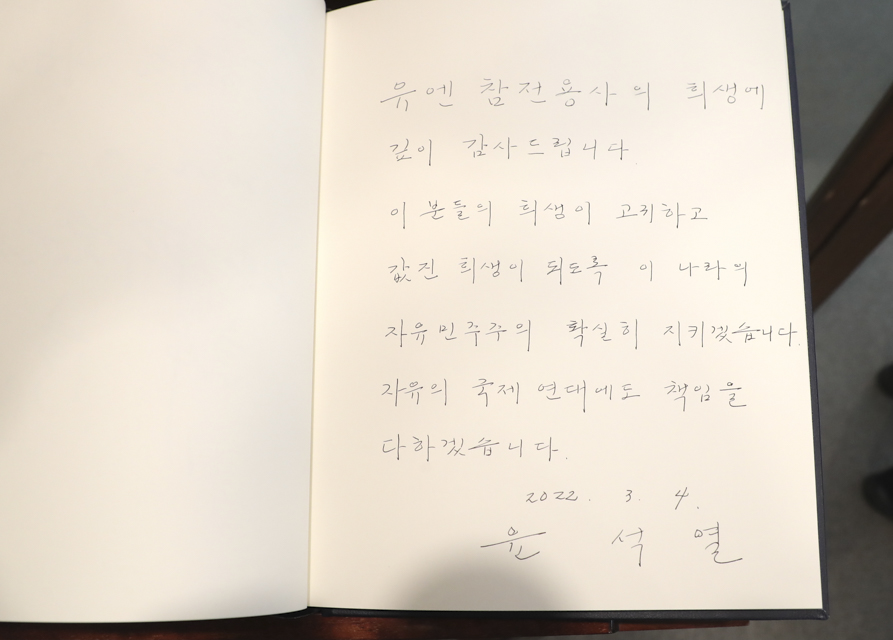 유엔 참전용사의 희생에
깊이 감사드립니다
이 분들의 희생이 고귀하고
값진 희생이 되도록 이 나라의
자유민주주의 확실히 지키겠습니다.
자유의 국제 연대에도 책임을
다하겠습니다.
2022. 3. 4.
윤 석 열